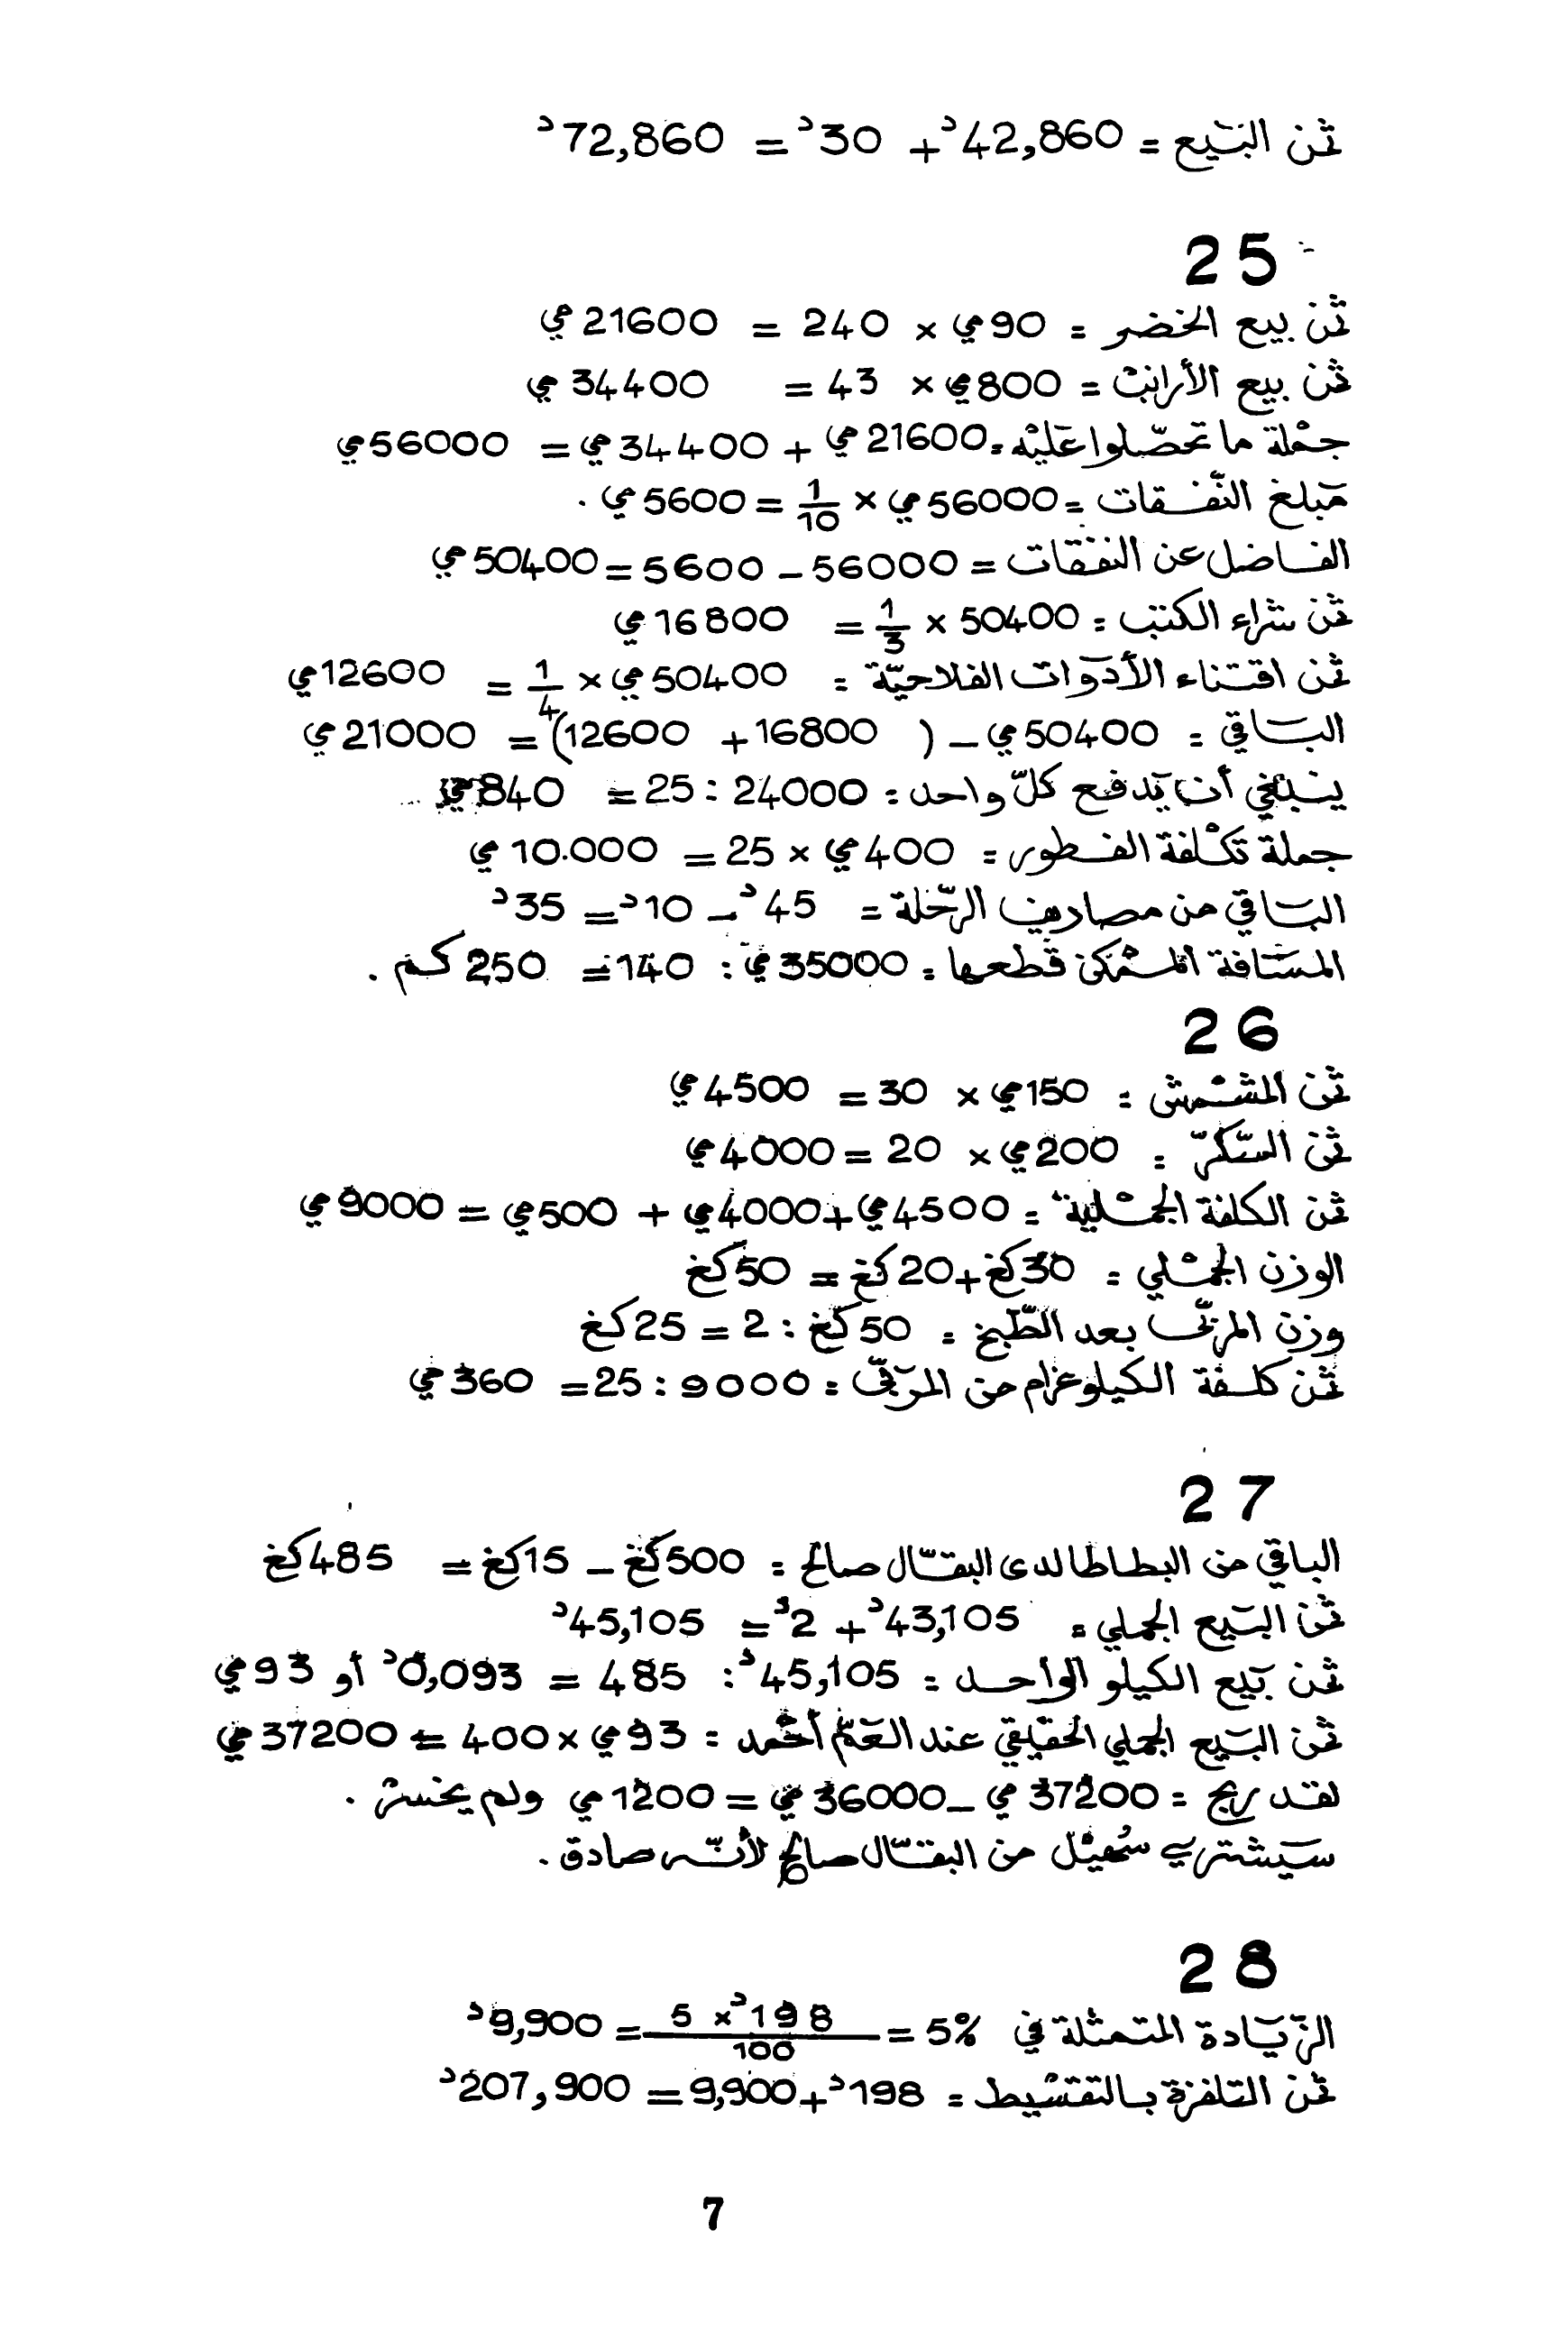 ثمن البيع = 42,860د + 30د = 72,860د
25
ثمن بيع الخضر = 90مي × 240 = 21600مي
ثمن بيع الأرانب = 800مي × 43 = 34400مي
جملة ما تحصّلوا عليه = 21600مي + 34400مي = 56000مي
مبلغ النّفقات = 56000مي × 1/10 = 5600مي .
الفاضل عن النفقات = 56000 – 5600 = 50400مي
ثمن شراء الكتب = 50400 × 1/3 = 16800مي
ثمن اقتناء الأدوات الفلاحيّة = 50400مي × 1/4 = 12600مي
الباقي = 50400مي – ( 16800 + 12600) = 21000مي
ينبغي أن يدفع كلّ واحد = 24000 : 25 = 840مي
جملة تكلفة الفطور = 400مي × 25 = 10.000مي
الباقي من مصاريف الرّحلة = 45د – 10د = 35د
المسافة الممكن قطعها = 35000مي : 140 = 250 كم .
26
ثمن المشمش = 150مي × 30 = 4500مي
ثمن السّكرّ = 200مي × 20 = 4000مي
ثمن الكلفة الجملية = 4500مي + 4000مي + 500مي = 9000مي
الوزن الجملي = 30كغ + 20كغ = 50كغ
وزن المربّى بعد الطّبخ = 50كغ : 2 = 25كغ
ثمن كلفة الكيلوغرام من المربّى = 9000 : 25 = 360مي
27
الباقي من البطاطا لدى البقّال صالح = 500كغ – 15كغ = 485كغ
ثمن البيع الجملي = 43,105د + 2د = 45,105د
ثمن بيع الكيلو الواحد = 45,105د : 485 = 0,093د أو 93مي
ثمن البيع الجملي الحقيقي عند العمّ أحمد = 93مي × 400 = 37200مي
لقد ربح = 37200مي – 36000مي = 1200مي ولم يخسر .
سيشتري سهيل من البقّال صالح لأنّه صادق .
28
الزّيادة المتمثلة في 5% = 198د × 5 / 100 = 9,900د
ثمن التلفزة بالتقسيط = 198د + 9,900 = 207,900د
7